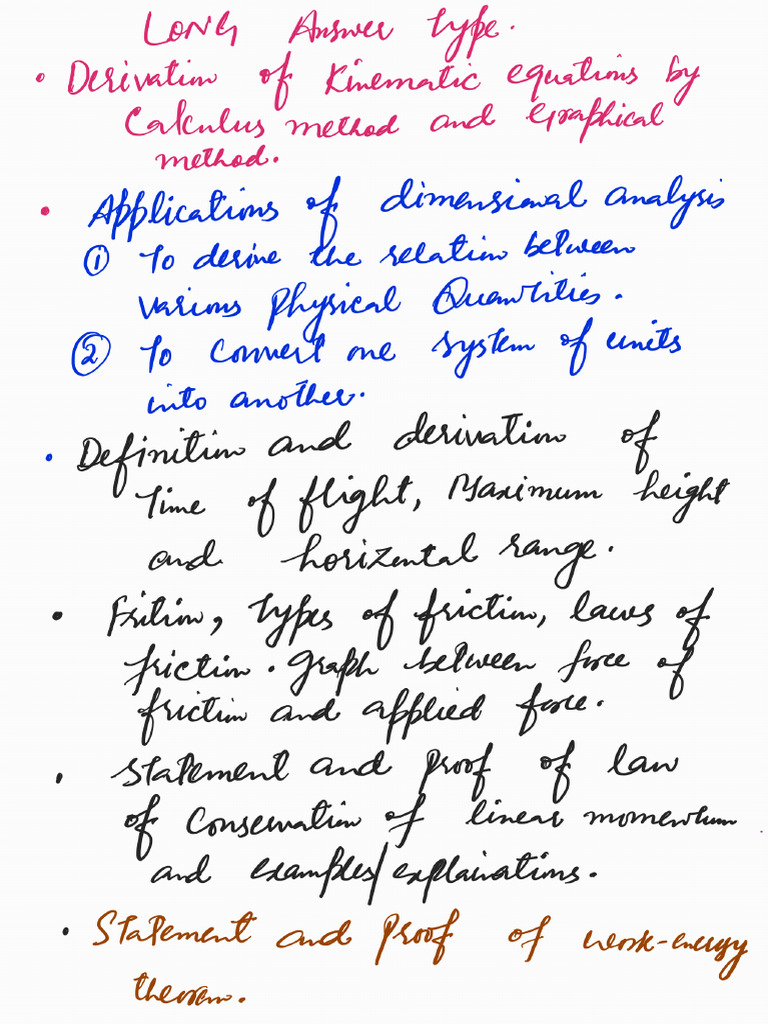 LONG Answer type.
• Derivation of Kinematic equations by
Calculus method and Graphical
method.
• Applications of dimensional analysis
① To derive the relation between
various Physical Quantities.
② To convert one system of units
into another.
• Definition and derivation of
Time of flight, Maximum height
and horizental range.
• Frition, Types of friction, laws of
friction. Graph between force of
friction and applied force.
• Statement and proof of law
of Conservation of linear momentum
and examples/explainations.
• Statement and Proof of work-energy
theorem.